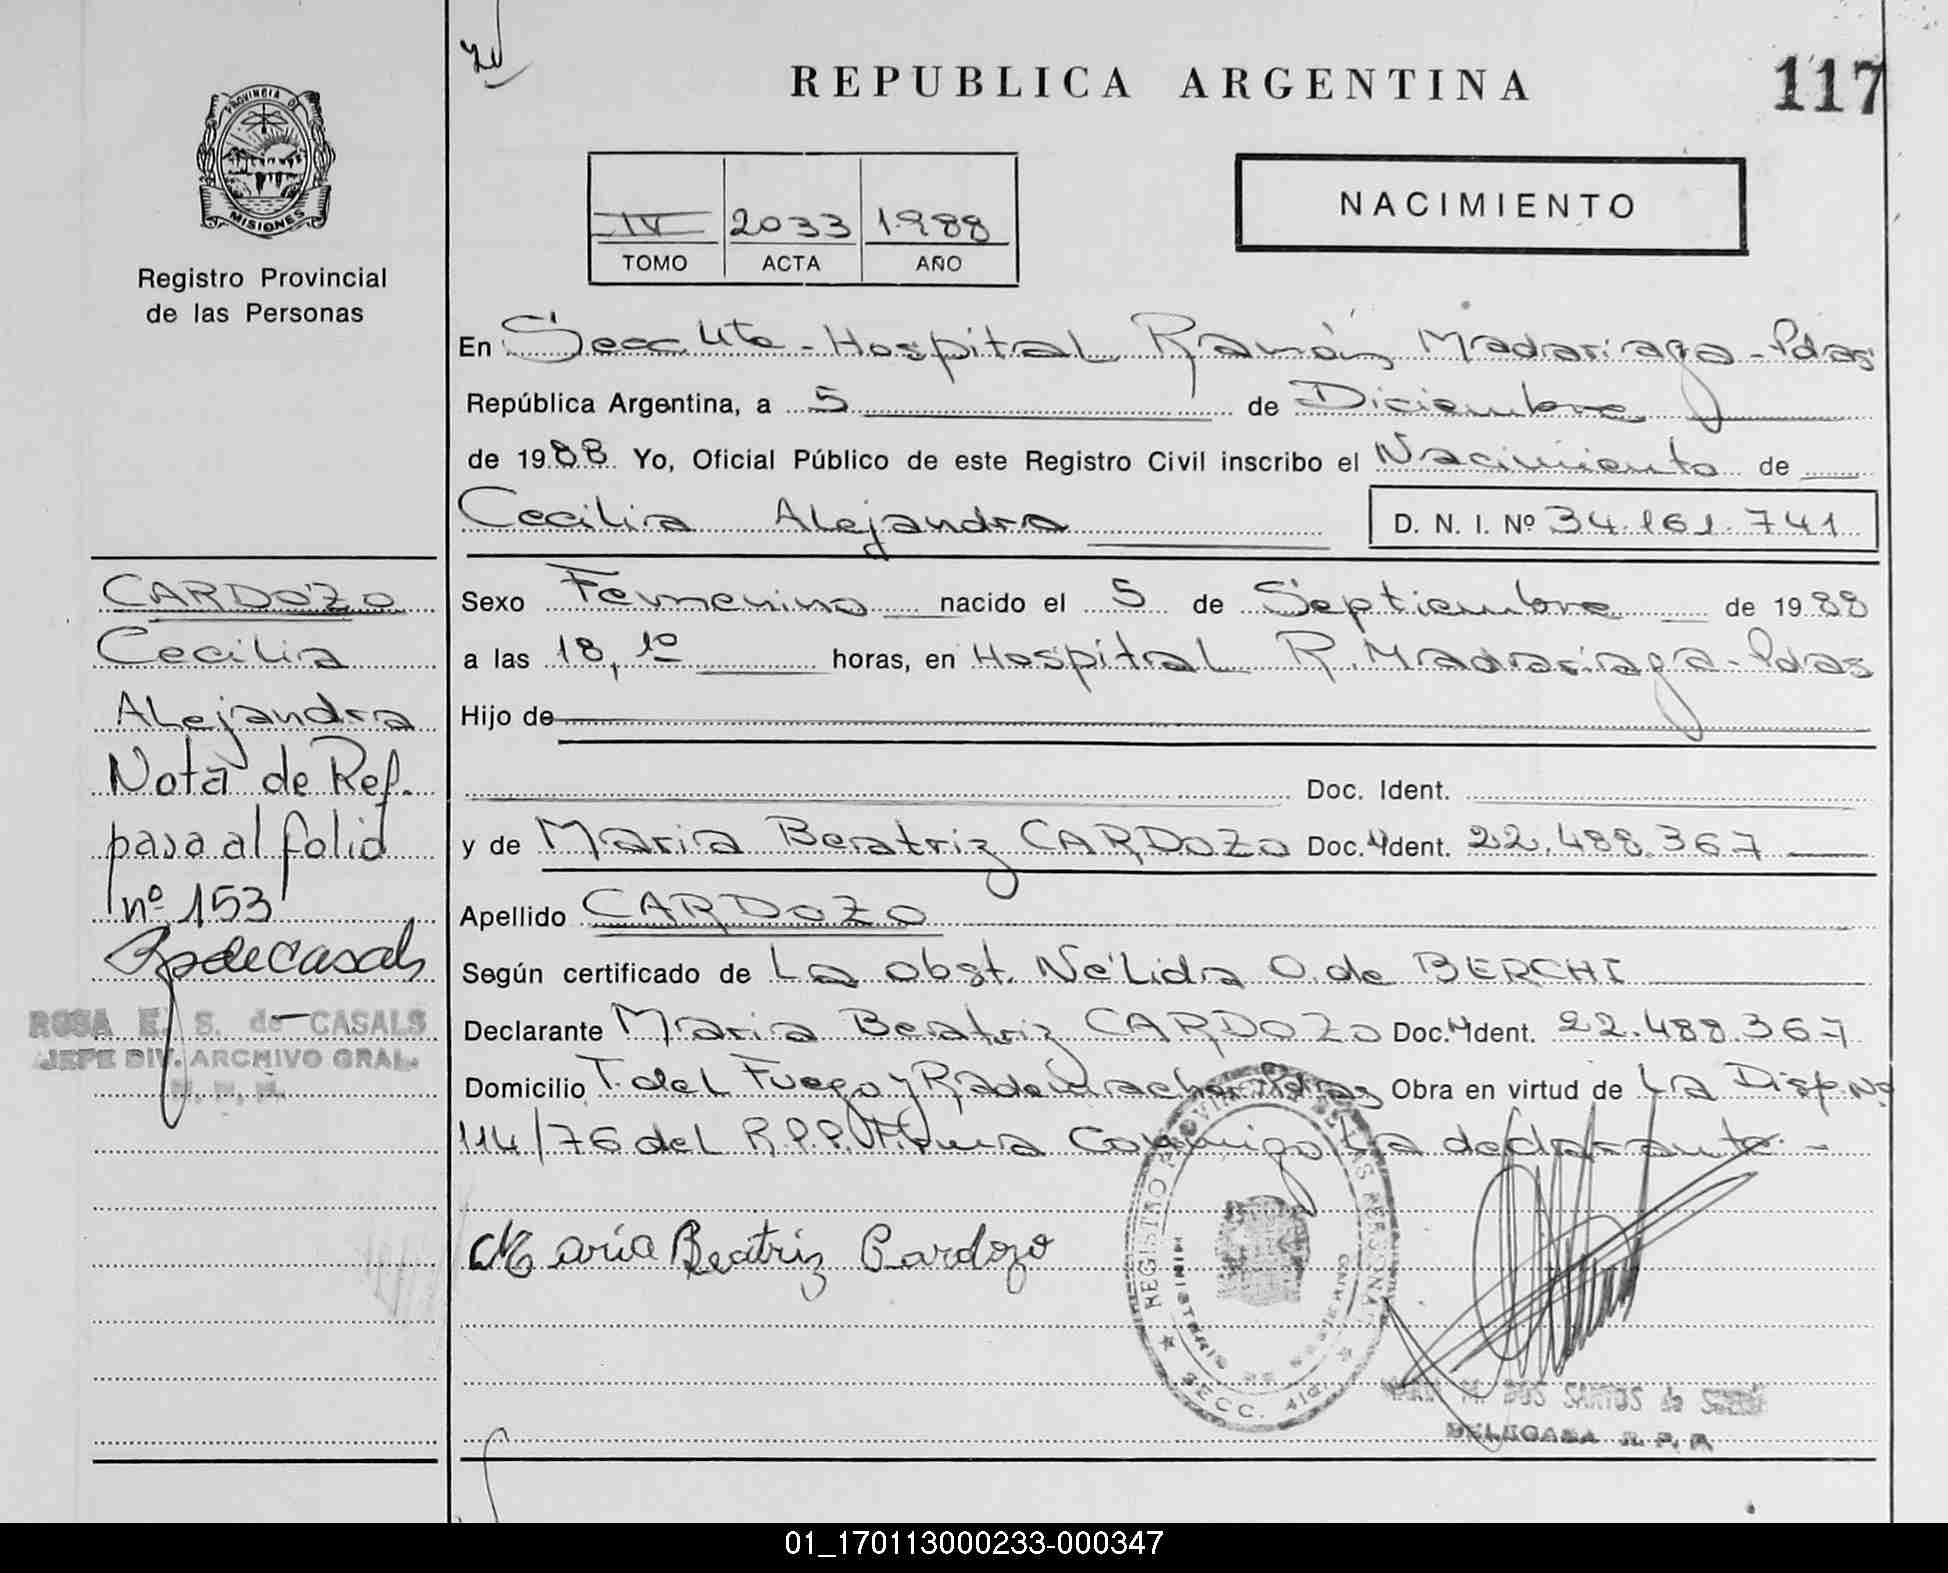 REPUBLICA ARGENTINA
117
PROVINCIA D
MISIONES
Registro Provincial
de las Personas
IV 2033 1988
TOMO ACTA AÑO
NACIMIENTO
En Secc 4ta - Hospital Ramón Madariaga - Pdas
República Argentina, a 5 de Diciembre
de 1988 Yo, Oficial Público de este Registro Civil inscribo el Nacimiento de
Cecilia Alejandra
D. N. I. Nº 34.161.741
Sexo Femenino nacido el 5 de Septiembre de 1988
a las 18,10 horas, en Hospital R. Madariaga - Pdas
Hijo de
Doc. Ident.
y de Maria Beatriz CARDOZO Doc. Ident. 22.488.367
Apellido CARDOZO
Según certificado de La obst. Nélida O. de BERCHI
Declarante Maria Beatriz CARDOZO Doc. Ident. 22.488.367
Domicilio T. del Fuego y Rademacher Pdas Obra en virtud de La Disp. Nº
114/76 del R.P.P. Firma Conmigo La declarante. -
María Beatriz Cardozo
CARDOZO
Cecilia
Alejandra
Nota de Ref.
pasa al folio
nº 153
ROSA E. S. de CASALS
JEFE DIV. ARCHIVO GRAL.
REGISTRO PROVINCIAL DE LAS PERSONAS
SECC. 4ta.
DOS SANTOS de
DELEGADA R. P. P.
01_170113000233-000347